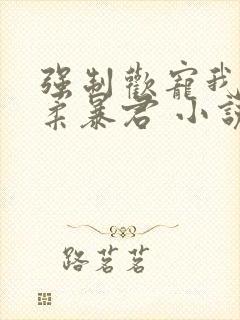 强制歡寵我
柔暴君 小說
路茗茗